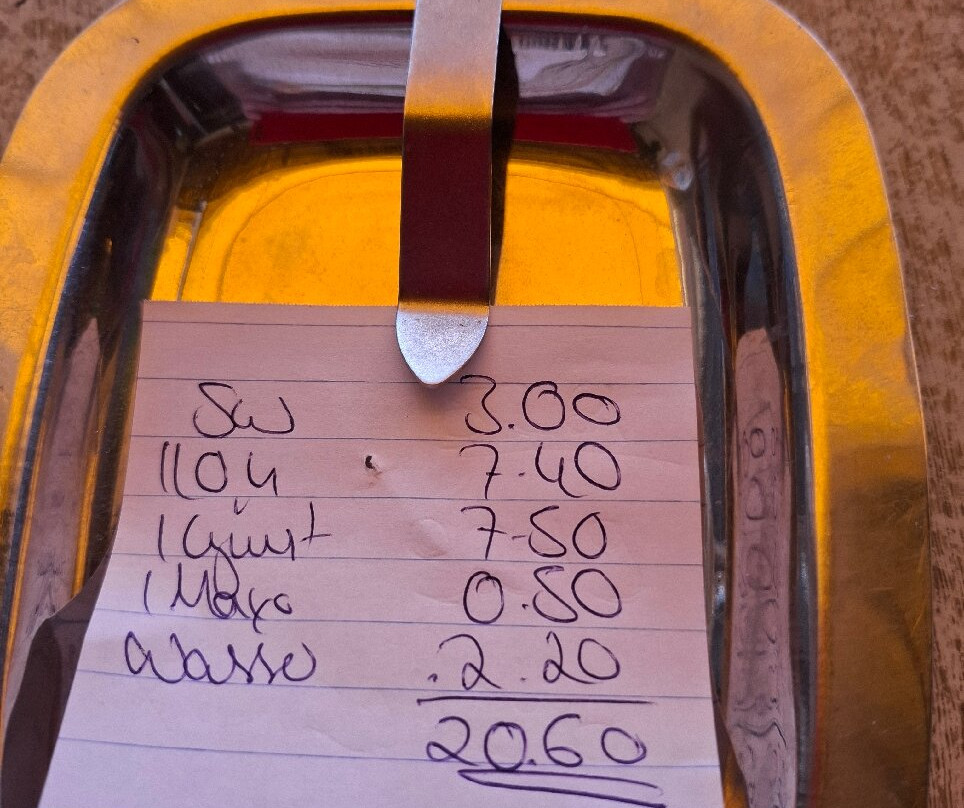 SW 3.00
7.40
1 7.50
1 Mayo 0.50
Wasser 2.20
20.60